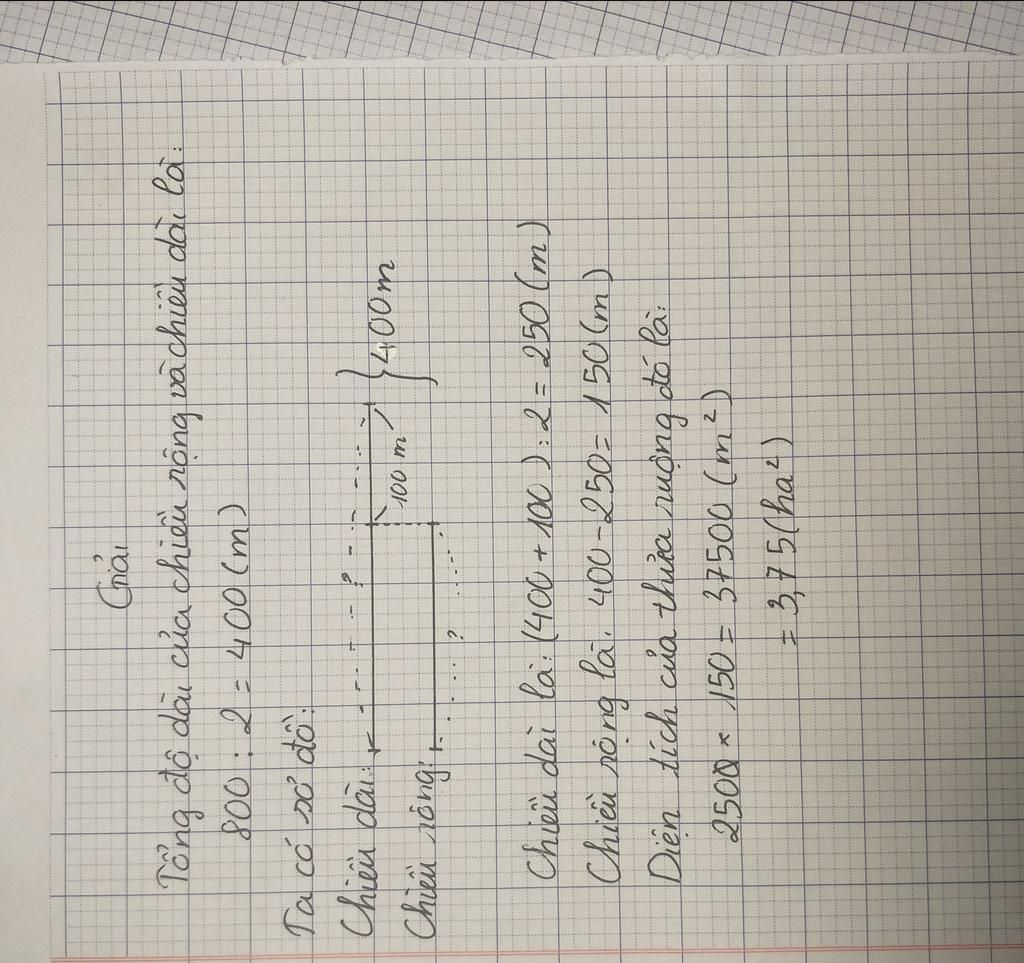 Giải
Tổng độ dài của chiều rộng và chiều dài là:
800 : 2 = 400 (m)
Ta có sơ đồ:
?
Chiều dài:
100 m
400 m
Chiều rộng:
?
Chiều dài là: (400 + 100) : 2 = 250 (m)
Chiều rộng là: 400 - 250 = 150 (m)
Diện tích của thửa ruộng đó là:
250 × 150 = 37500 (m²)
= 3,75 (ha²)